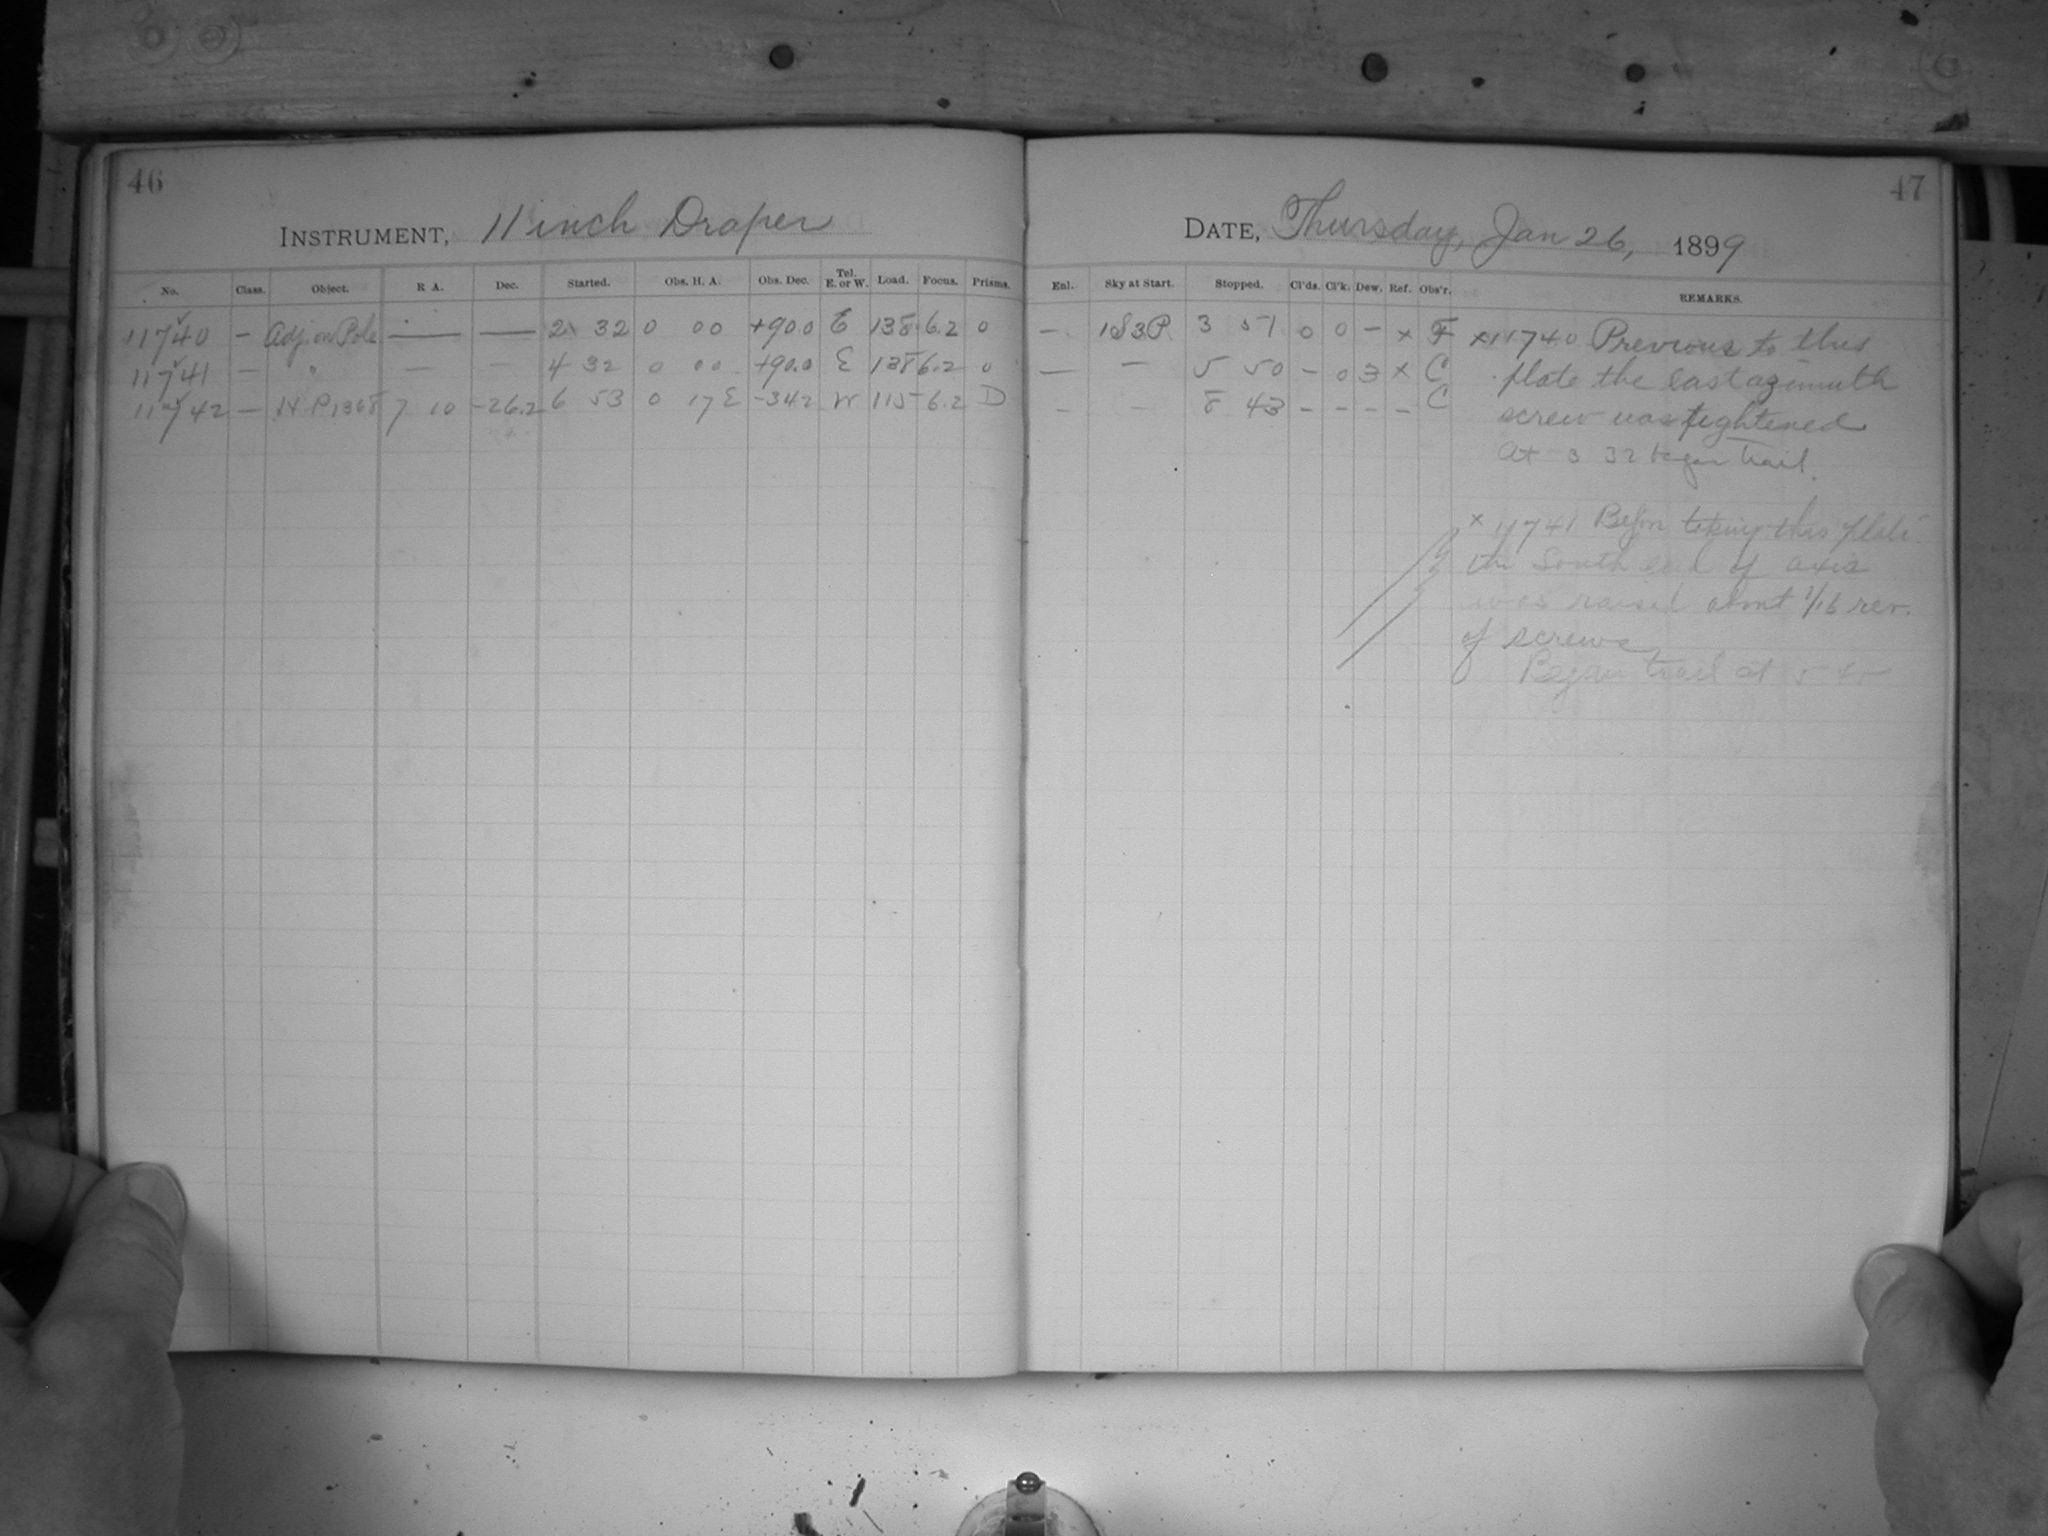 46
47
INSTRUMENT, 11 inch Draper
DATE, Thursday, Jan 26, 1899
No. Class. Object. R A. Dec. Started. Obs. H. A. Obs. Dec. Tel. E. or W. Load. Focus. Prisms. Enl. Sky at Start. Stopped. Cl'ds. Cl'k. Dew. Ref. Obs'r. REMARKS.
11740 — Adj. on Pole — — 2 32 0 00 +90.0 E 138 6.2 0 — 1S3P 3 51 0 0 — x F x11740 Previous to this
11741 — " — — 4 32 0 00 +90.0 E 138 6.2 0 — — 5 50 - 0 3 x C plate the east azimuth
11742 — N.P. 1368 7 10 -26.2 6 53 0 17 E -34.2 W 115 6.2 D — — 8 43 - - - - C screw was tightened
At 3 32 began trail.
x 11741 Before taking this plate
the South end of axis
was raised about 1/16 rev.
of screws
Began trail at 5